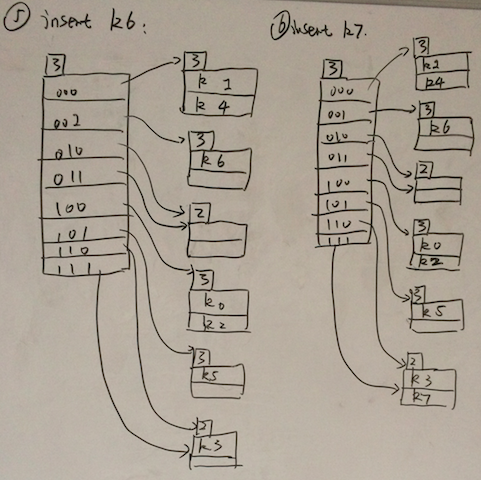 5 insert k6.
3
000
002
010
011
100
101
110
111
3
k 1
k 4
3
k6
2
3
k0
k2
3
k5
2
k3
6 insert k7.
3
000
001
010
011
100
101
110
111
3
k1
k4
3
k6
2
3
k0
k2
3
k5
2
k3
k7